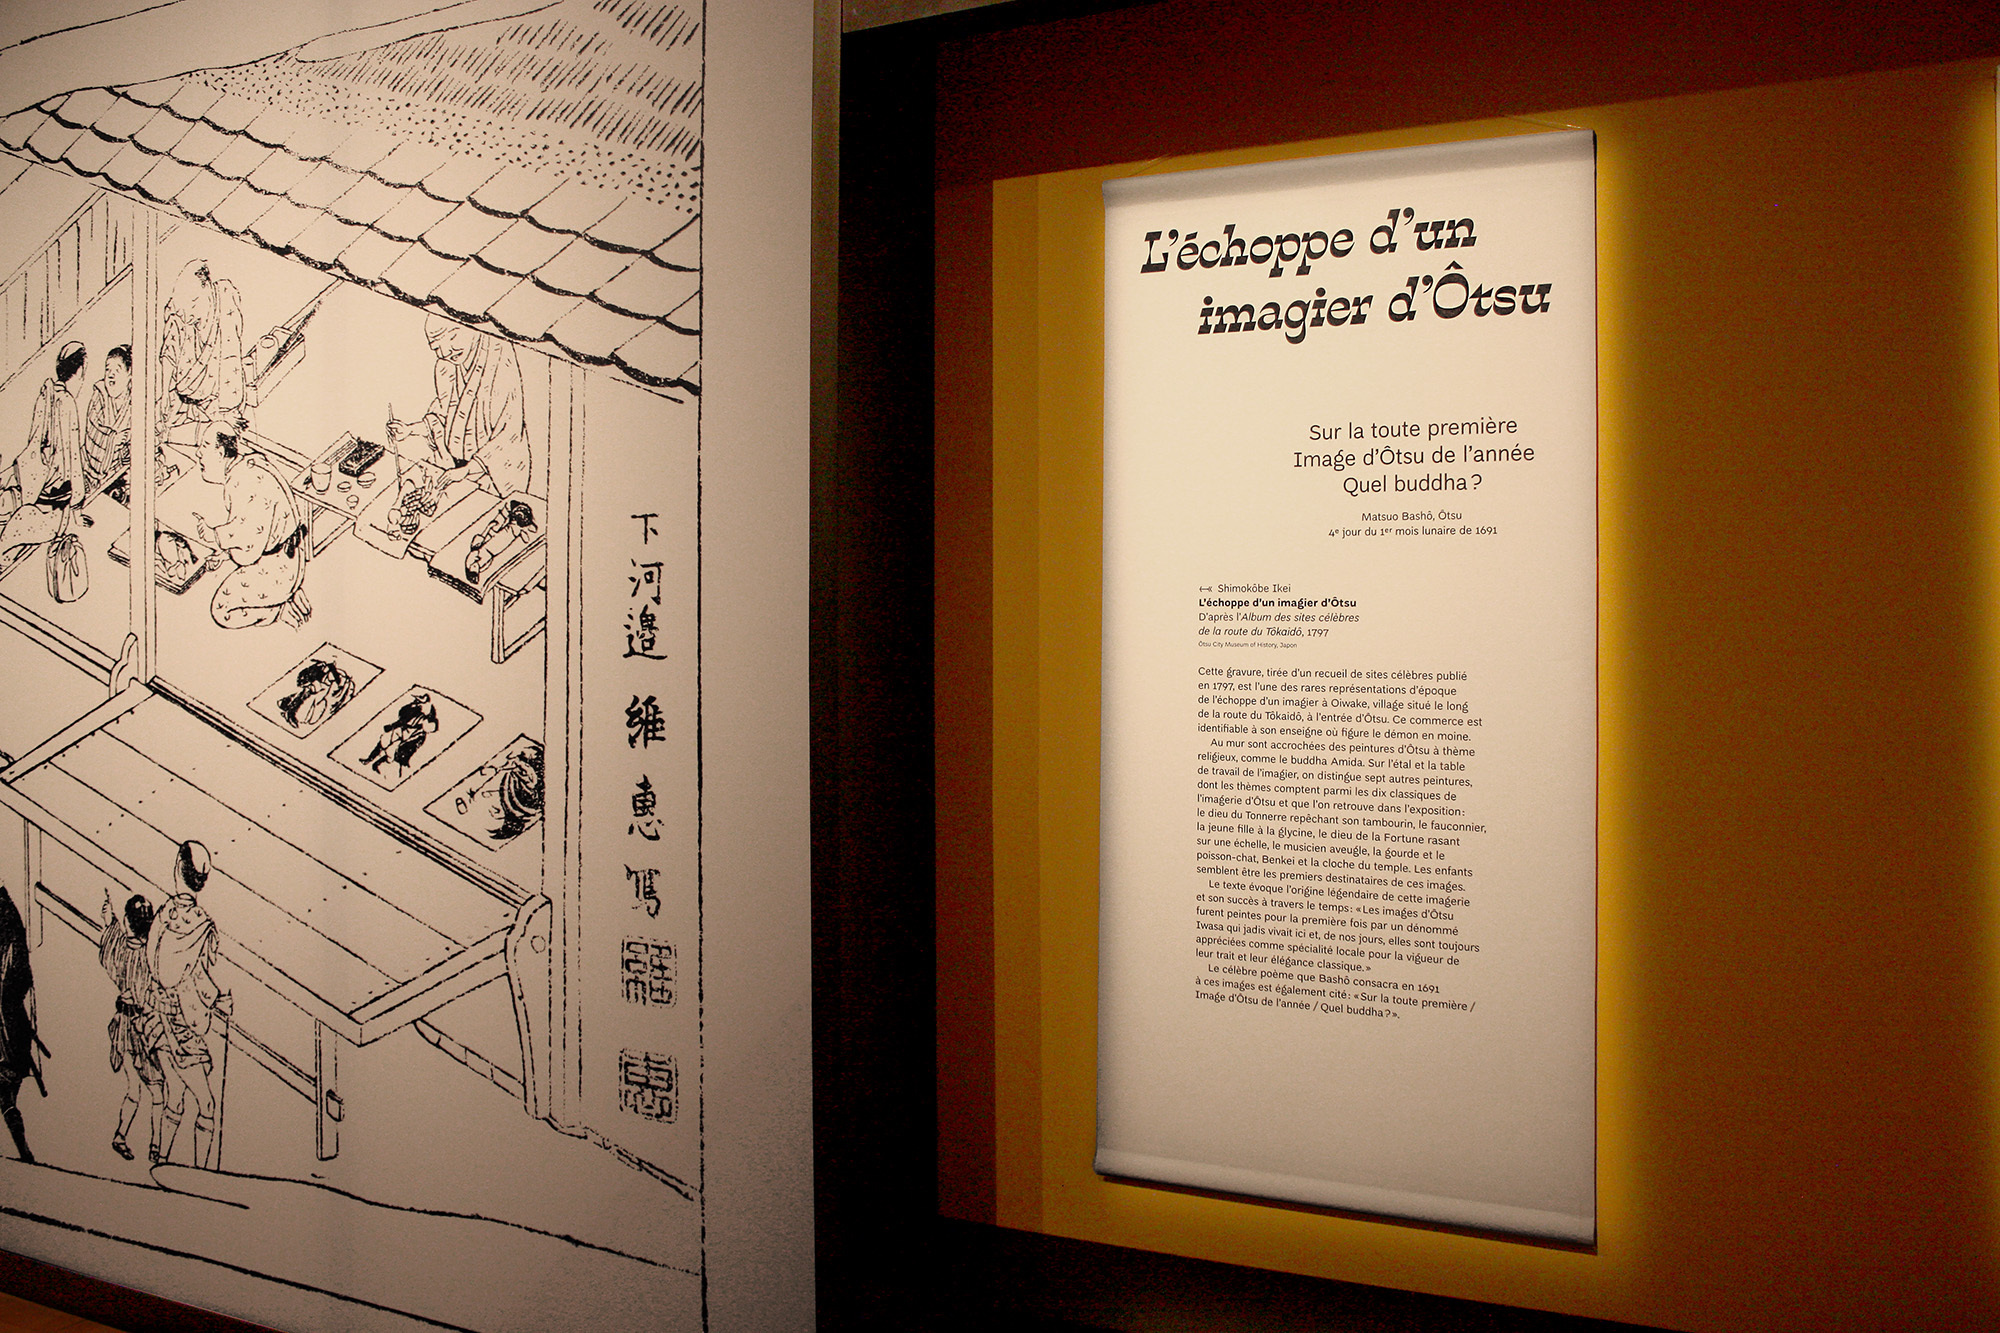 下
河
邉
維
惠
寫
L'échoppe d'un
imagier d'Ôtsu
Sur la toute première
Image d'Ôtsu de l'année
Quel buddha ?
Matsuo Bashô, Ôtsu
4e jour du 1er mois lunaire de 1691
Shimokôbe Ikei
L'échoppe d'un imagier d'Ôtsu
D'après l'Album des sites célèbres
de la route du Tôkaidô, 1797
Ôtsu City Museum of History, Japon
Cette gravure, tirée d'un recueil de sites célèbres publié
en 1797, est l'une des rares représentations d'époque
de l'échoppe d'un imagier à Oiwake, village situé le long
de la route du Tôkaidô, à l'entrée d'Ôtsu. Ce commerce est
identifiable à son enseigne où figure le démon en moine.
Au mur sont accrochées des peintures d'Ôtsu à thème
religieux, comme le buddha Amida. Sur l'étal et la table
de travail de l'imagier, on distingue sept autres peintures,
dont les thèmes comptent parmi les dix classiques de
l'imagerie d'Ôtsu et que l'on retrouve dans l'exposition :
le dieu du Tonnerre repêchant son tambourin, le fauconnier,
la jeune fille à la glycine, le dieu de la Fortune rasant
sur une échelle, le musicien aveugle, la gourde et le
poisson-chat, Benkei et la cloche du temple. Les enfants
semblent être les premiers destinataires de ces images.
Le texte évoque l'origine légendaire de cette imagerie
et son succès à travers le temps : « Les images d'Ôtsu
furent peintes pour la première fois par un dénommé
Iwasa qui jadis vivait ici et, de nos jours, elles sont toujours
appréciées comme spécialité locale pour la vigueur de
leur trait et leur élégance classique. »
Le célèbre poème que Bashô consacra en 1691
à ces images est également cité : « Sur la toute première /
Image d'Ôtsu de l'année / Quel buddha ? ».